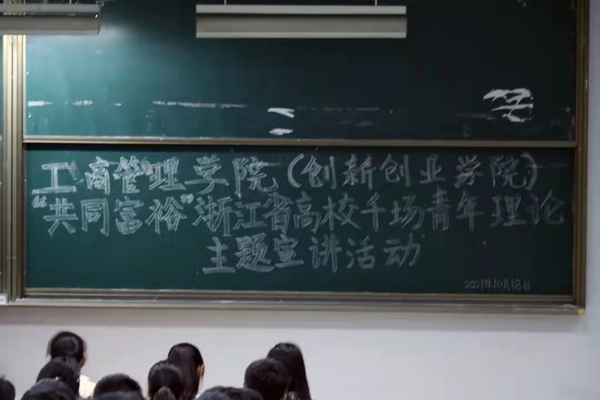 工商管理学院（创新创业学院）
“共同富裕”浙江省高校千场青年理论
主题宣讲活动
2021年10月18日